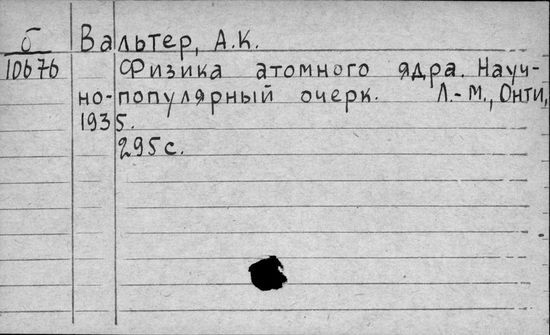 б Вальтер, А.К.
10676 Физика атомного ядра. Науч-
но-популярный очерк. Л.-М., Онти,
1935.
295 с.